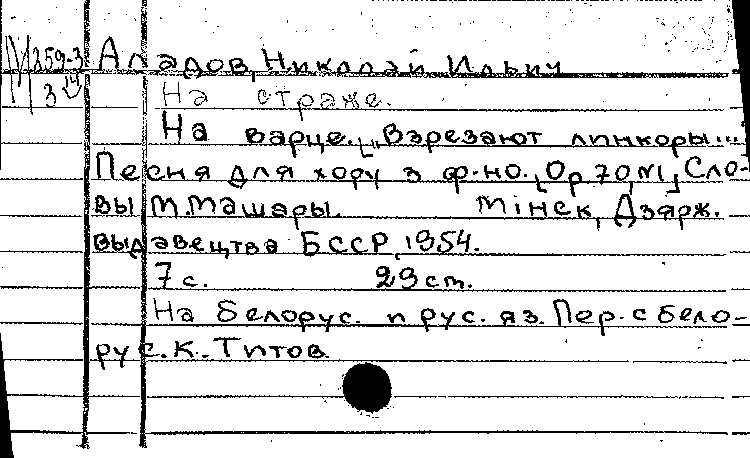 М 259-3 Аладов, Николай Ильич
3 На страже.
На варце. ["Взрезают линкоры..."
Песня для хору з ф-но. [Ор. 70, №1] Сло-
вы М. Машары. Мінск, Дзярж.
выдавецтва БССР, 1954.
7 с. 29 cm.
На белорус. и рус. яз. Пер. с бело-
рус. К. Титов